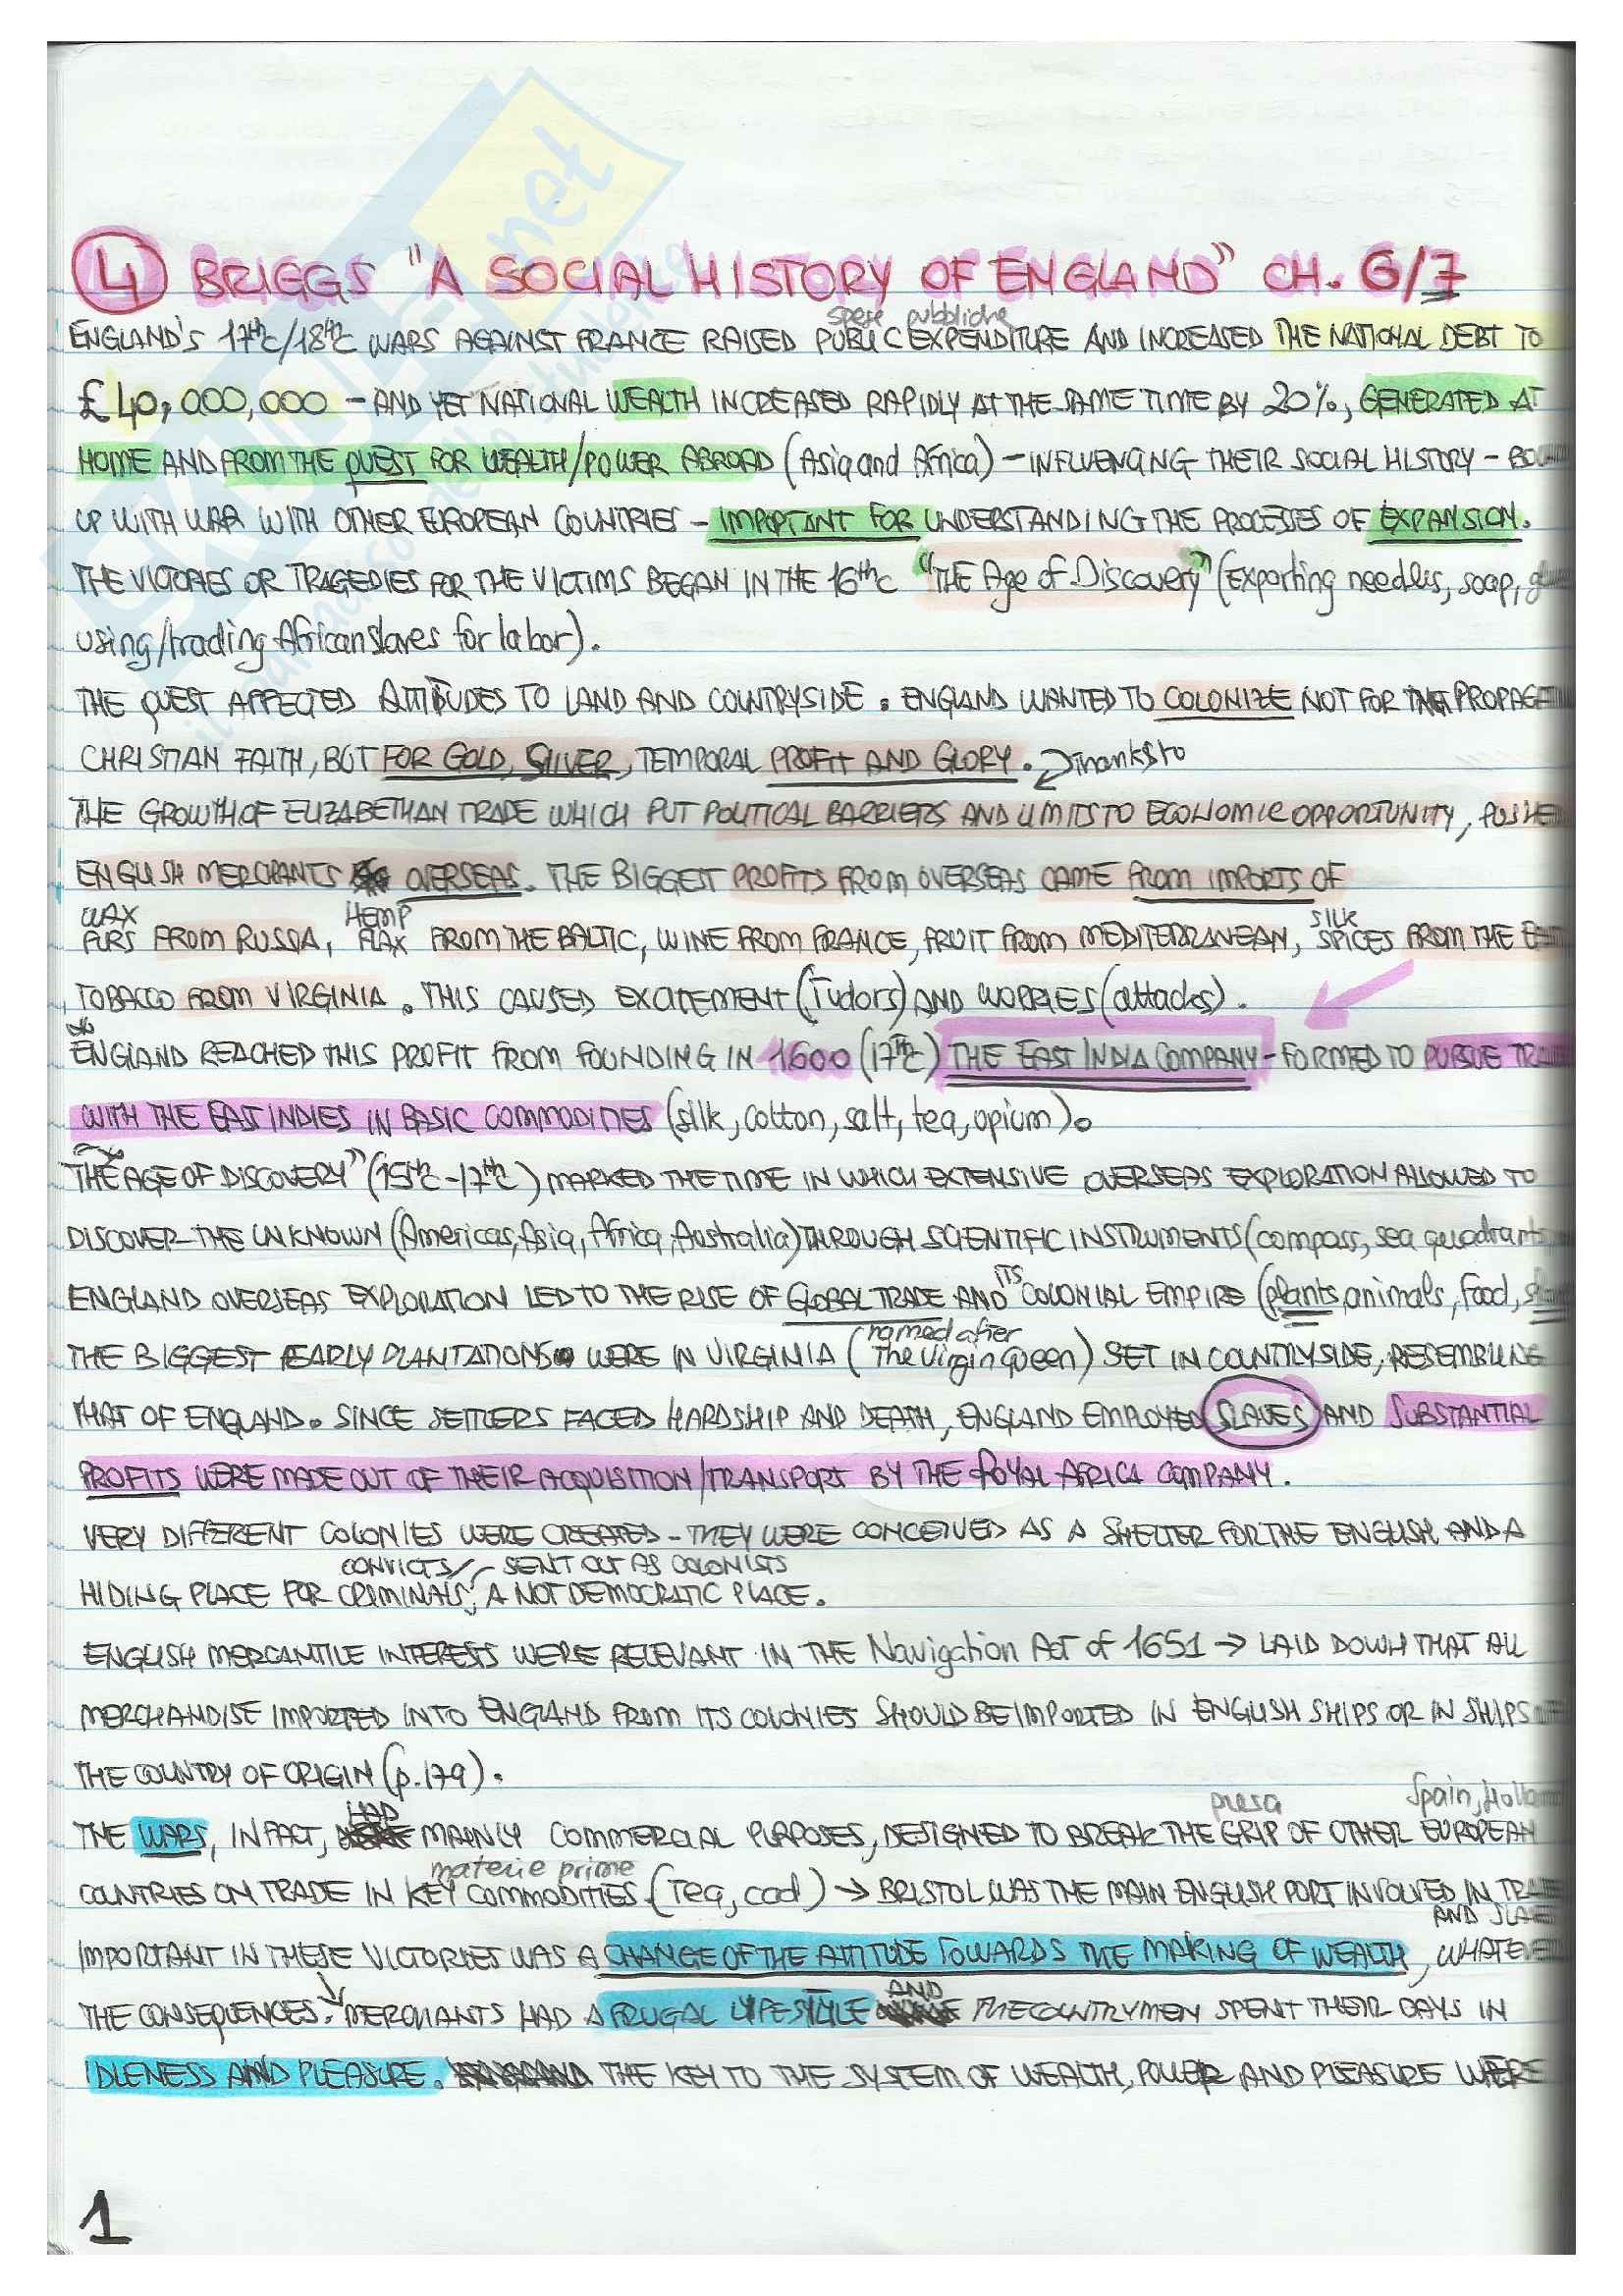 4 BRIGGS "A SOCIAL HISTORY OF ENGLAND" CH. 6/7
spese pubbliche
ENGLAND'S 17thc/18thc WARS AGAINST FRANCE RAISED PUBLIC EXPENDITURE AND INCREASED THE NATIONAL DEBT TO
£40,000,000 - AND YET NATIONAL WEALTH INCREASED RAPIDLY AT THE SAME TIME BY 20%, GENERATED AT
HOME AND FROM THE QUEST FOR WEALTH/POWER ABROAD (Asia and Africa) - INFLUENCING THEIR SOCIAL HISTORY -
UP WITH WAR WITH OTHER EUROPEAN COUNTRIES - IMPORTANT FOR UNDERSTANDING THE PROCESSES OF EXPANSION.
THE VICTORIES OR TRAGEDIES FOR THE VICTIMS BEGAN IN THE 16thc "THE Age of Discovery" (Exporting needles, soap,
using/trading African slaves for labor).
THE QUEST AFFECTED ATTITUDES TO LAND AND COUNTRYSIDE. ENGLAND WANTED TO COLONIZE NOT FOR THE
CHRISTIAN FAITH, BUT FOR GOLD, SILVER, TEMPORAL PROFIT AND GLORY. Thanks to
THE GROWTH OF ELIZABETHAN TRADE WHICH PUT POLITICAL BARRIERS AND LIMITS TO ECONOMIC OPPORTUNITY, PUSHED
ENGLISH MERCHANTS OVERSEAS. THE BIGGEST PROFITS FROM OVERSEAS CAME FROM IMPORTS OF
WAX HEMP SILK
FURS FROM RUSSIA, FLAX FROM THE BALTIC, WINE FROM FRANCE, FRUIT FROM MEDITERRANEAN, SPICES FROM THE
TOBACCO FROM VIRGINIA. THIS CAUSED EXCITEMENT (Tudors) AND WORRIES (attacks).
ENGLAND REACHED THIS PROFIT FROM FOUNDING IN 1600 (17thc) THE EAST INDIA COMPANY - FORMED TO PURSUE TRADE
WITH THE EAST INDIES IN BASIC COMMODITIES (silk, cotton, salt, tea, opium).
THE AGE OF DISCOVERY" (15thc - 17thc) MARKED THE TIME IN WHICH EXTENSIVE OVERSEAS EXPLORATION ALLOWED TO
DISCOVER THE UNKNOWN (Americas, Asia, Africa, Australia) THROUGH SCIENTIFIC INSTRUMENTS (compass, sea quadrants
ITS
ENGLAND OVERSEAS EXPLORATION LED TO THE RISE OF GLOBAL TRADE AND COLONIAL EMPIRE (plants, animals, food,
named after
THE BIGGEST EARLY PLANTATIONS WERE IN VIRGINIA (The Virgin Queen) SET IN COUNTRYSIDE, RESEMBLING
THAT OF ENGLAND. SINCE SETTLERS FACED HARDSHIP AND DEATH, ENGLAND EMPLOYED SLAVES AND SUBSTANTIAL
PROFITS WERE MADE OUT OF THEIR ACQUISITION/TRANSPORT BY THE ROYAL AFRICA COMPANY.
VERY DIFFERENT COLONIES WERE CREATED - THEY WERE CONCEIVED AS A SHELTER FOR THE ENGLISH AND A
CONVICTS/- SENT OUT AS COLONISTS
HIDING PLACE FOR CRIMINALS, A NOT DEMOCRATIC PLACE.
ENGLISH MERCANTILE INTERESTS WERE RELEVANT IN THE Navigation Act of 1651 → LAID DOWN THAT ALL
MERCHANDISE IMPORTED INTO ENGLAND FROM ITS COLONIES SHOULD BE IMPORTED IN ENGLISH SHIPS OR IN SHIPS
THE COUNTRY OF ORIGIN (p.179).
HAD presa Spain,
THE WARS, IN FACT, MAINLY COMMERCIAL PURPOSES, DESIGNED TO BREAK THE GRIP OF OTHER EUROPEAN
materie prime
COUNTRIES ON TRADE IN KEY COMMODITIES (Tea, cod) → BRISTOL WAS THE MAIN ENGLISH PORT INVOLVED IN
AND
IMPORTANT IN THESE VICTORIES WAS A CHANGE OF THE ATTITUDE TOWARDS THE MAKING OF WEALTH, WHATEVER
AND
THE CONSEQUENCES. MERCHANTS HAD A FRUGAL LIFESTYLE THE COUNTRYMEN SPENT THEIR DAYS IN
IDLENESS AND PLEASURE. THE KEY TO THE SYSTEM OF WEALTH, POWER AND PLEASURE WERE
1